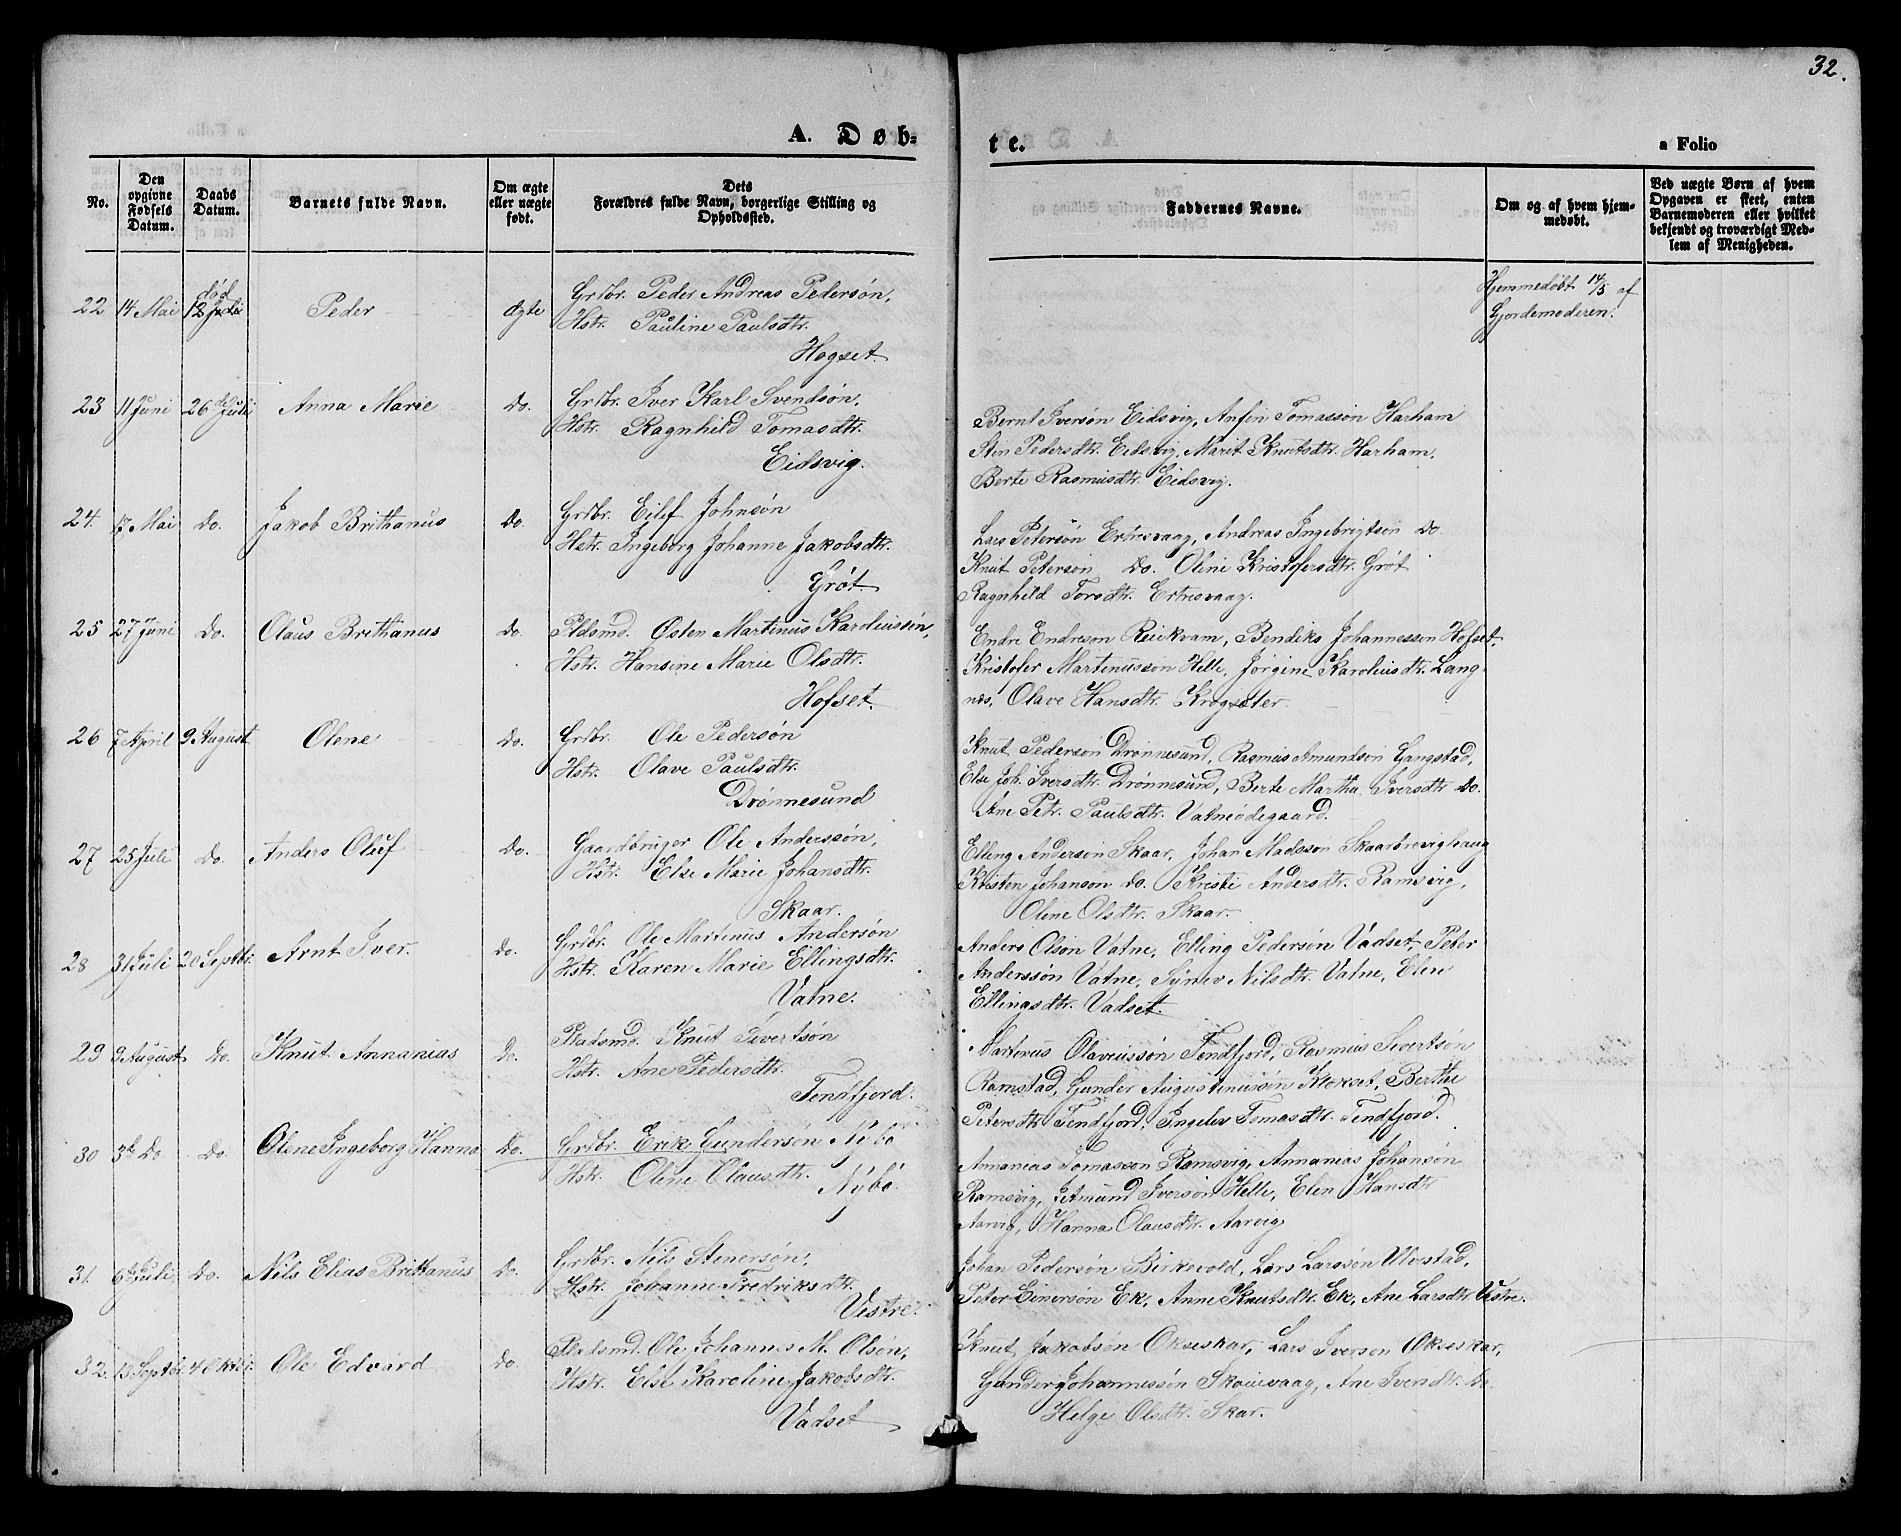 32.
A. Døb-
te.
a Folio
No.
Den opgivne Fødsels Datum.
Daabs Datum.
Barnets fulde Navn.
Om ægte eller uægte født.
Dets Forældres fulde Navn, borgerlige Stilling og Opholdssted.
Faddernes Navne.
Om og af hvem hjemmedøbt.
Ved uægte Børn af hvem Opgaven er skeet, enten Barnemoderen eller hvilket bekjendt og troværdigt Medlem af Menigheden.
22 14 Mai død 12 Peder ægte Grdbr. Peder Andreas Pedersøn,
Hstr. Pauline Paulsdtr.
Hogset.
Hjemmedøbt 14/5 af
Gjordemoderen.
23 11 Juni 26 Juli Anna Marie do. Grdbr. Iver Karl Svendsøn,
Hstr. Ragnhild Tomasdtr.
Eidsvig.
Bernt Iversøn Eidsvig, Anfin Tomassøn Harham
Pedersdtr. Eidsvig, Marit Knutsdtr. Harham,
Berte Rasmusdtr. Eidsvig.
24. 17 Mai do. Jakob Brithanus do Grdbr. Eilef Johnsøn
Hstr. Ingeborg Johanne Jakobsdtr.
Grøt.
Lars Petersøn Ertresvaag, Andreas Ingebrigtsøn do
Knut Petersøn do. Oline Kristofersdtr. Grøt
Ragnhild Torsdtr. Ertresvaag.
25 27 Juni do. Olaus Brithanus do. Pladsmd. Østen Martinus Karoliussøn,
Hstr. Hansine Marie Olsdtr.
Hofset.
Endre Endreson Bendiks Johannesson Hofset,
Kristofer Martinussøn Helle, Jørgine Karoliusdtr. Lang-
nes, Olave Hansdtr. Krogsæter.
26 7 April 9 August Olene do. Grdbr. Ole Pedersøn
Hstr. Olave Paulsdtr.
Drønnesund
Knut Pedersøn Drønnesund, Rasmus Amundsøn Gangstad,
Else Joh. Iversdtr. Drønnesund, Berte Martha Iversdtr do.
Ane Petr. Paulsdtr. Vatneødegaard.
27 25 Juli do. Anders Oluf do. Gaardbruger Ole Anderssøn,
Hstr. Else Marie Johansdtr.
Skaar.
Elling Andersøn Skaar, Johan Madsson Skaarbrevighaug
Kristen Johansøn do. Kristi Andersdtr. Ramsvig,
Oline Olsdtr. Skaar.
28 31 Juli 20 Septbr. Arnt Iver. do. Grdbr. Ole Martinus Andersøn
Hstr. Karen Marie Ellingsdtr.
Vatne.
Anders Olsøn Vatne, Elling Pedersøn Vadset, Peter
Anderssøn Vatne, Synev Nilsdtr. Vatne, Elen
Ellingsdtr. Vadset.
29 9 August do. Knut Annanias do. Pladsmd. Knut Sivertsøn
Hstr. Ane Pedersdtr.
Tendfjord.
Martinus Olaveussøn Tendfjord, Rasmus Sivertsøn
Ramstad, Gunder Augustinussøn Klokset, Berthe
Petersdtr Tendfjord, Ingelev Tomasdtr. Tendfjord.
30 3de do do. Olene Ingeborg Hanna do. Grdbr. Erik Gundersøn Nybø
Hstr. Oline Clausdtr. Nybø.
Annanias Tomasson Ramsvig, Annanias Johansøn
Ramsvig, Iversøn Helle, Elen Hansdtr
Aarvig, Hanna Olausdtr. Aarvig
31. 6te Juli do. Nils Elias Brithanus do. Grdbr. Nils Stenersøn,
Hstr. Johanne Fredriksdtr.
Vestre.
Johan Pedersøn Birkevold, Lars Larsøn Ulvestad,
Peter Einersøn Ek, Anne Knutsdtr. Ek, Ane Larsdtr. Vestre.
32. 13 Septbr. 4 Oktbr. Ole Edvard do. Pladsmd. Ole Johannes M. Olsøn,
Hstr. Else Karoline Jakobsdtr.
Vadset
Knut Jakobsøn Okseskar, Lars Iversøn Okseskar,
Gunder Johannessøn Ane do
Helge Olsdtr. Skar.